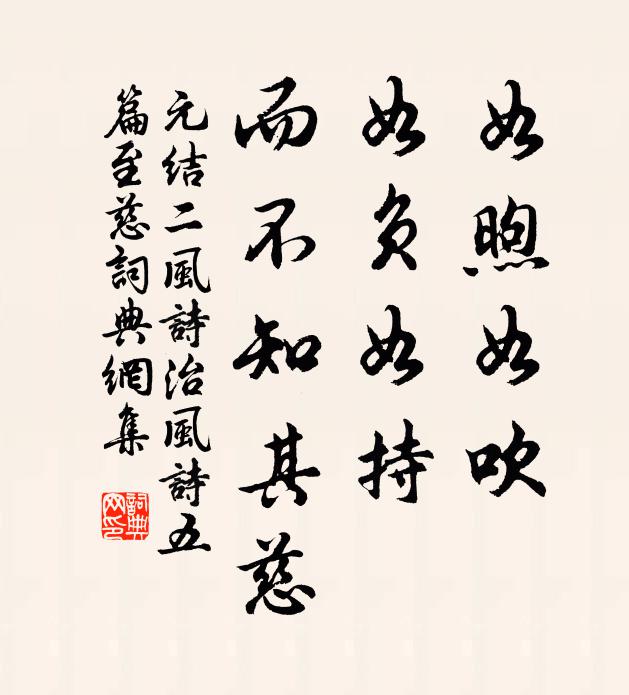 如煦如吹
如負如持
而不知其慈
元结二風詩治風詩五
篇至慈詞典網集
詞典網印